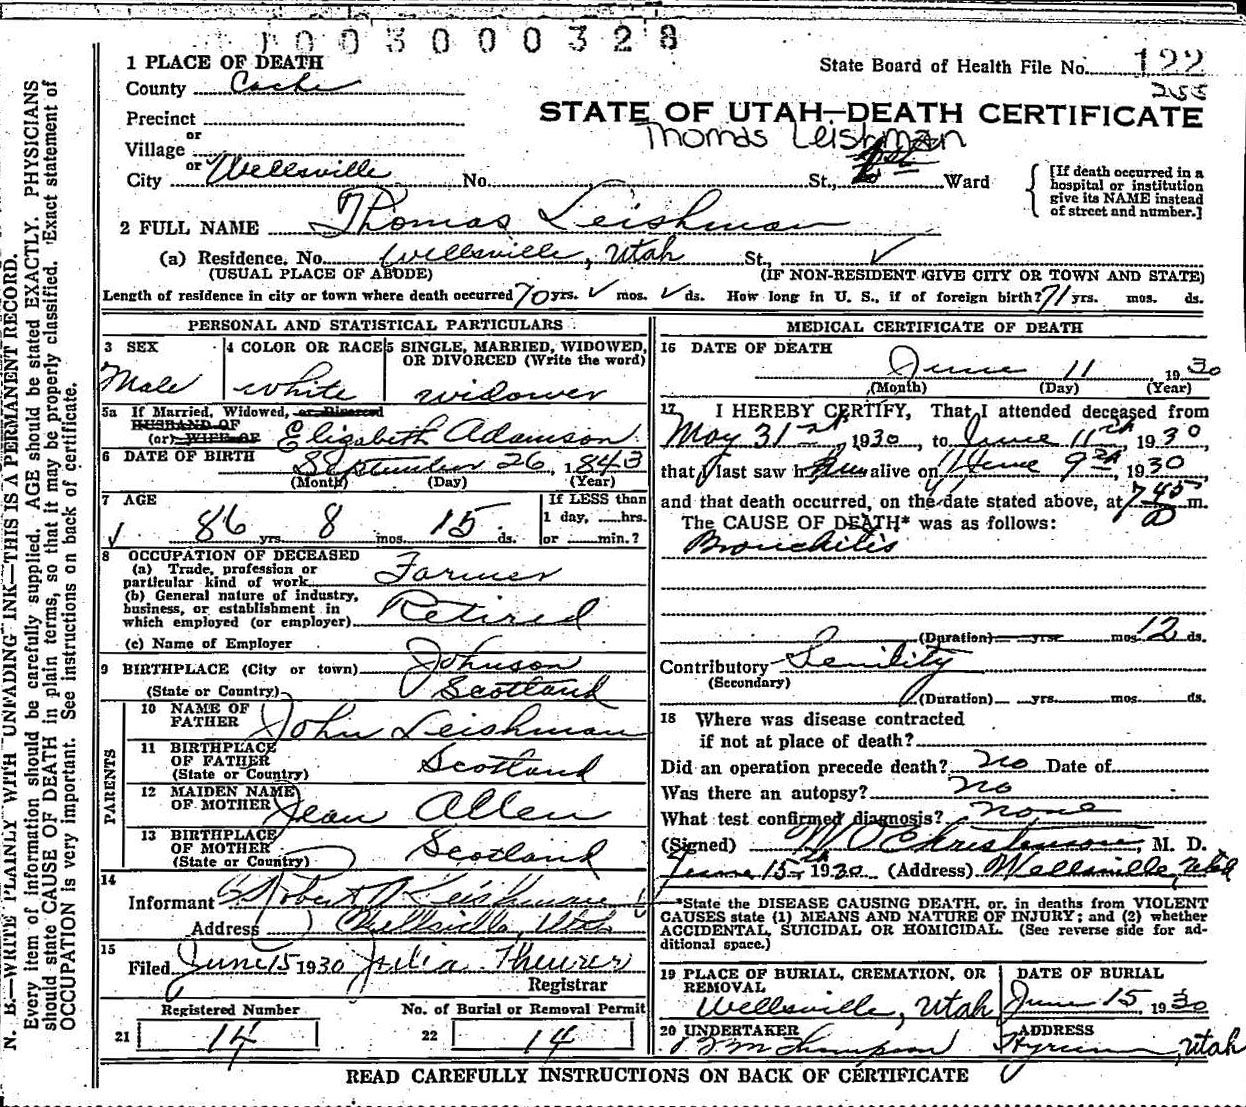 1003000328
1 PLACE OF DEATH
State Board of Health File No. 122
255
County Cache
STATE OF UTAH—DEATH CERTIFICATE
Precinct
Thomas Leishman
or
Village
or
City Wellsville No. St., Ward
[If death occurred in a hospital or institution give its NAME instead of street and number.]
2 FULL NAME Thomas Leishman
(a) Residence. No. Wellsville, Utah St., ✓
(USUAL PLACE OF ABODE) (IF NON-RESIDENT GIVE CITY OR TOWN AND STATE)
Length of residence in city or town where death occurred 70 yrs. ✓ mos. ✓ ds. How long in U. S., if of foreign birth? 71 yrs. mos. ds.
PERSONAL AND STATISTICAL PARTICULARS
3 SEX
Male
4 COLOR OR RACE
White
5 SINGLE, MARRIED, WIDOWED, OR DIVORCED (Write the word)
widower
5a If Married, Widowed, or Divorced
HUSBAND OF
(or) WIFE OF Elizabeth Adamson
6 DATE OF BIRTH September 26, 1843
(Month) (Day) (Year)
7 AGE
✓ 86 yrs. 8 mos. 15 ds.
If LESS than
1 day, ___hrs.
or ___min.?
8 OCCUPATION OF DECEASED
(a) Trade, profession or
particular kind of work Farmer
(b) General nature of industry,
business, or establishment in
which employed (or employer) Retired
(c) Name of Employer
9 BIRTHPLACE (City or town) Johnson
(State or Country) Scotland
PARENTS
10 NAME OF
FATHER John Leishman
11 BIRTHPLACE
OF FATHER
(State or Country) Scotland
12 MAIDEN NAME
OF MOTHER Jean Allen
13 BIRTHPLACE
OF MOTHER
(State or Country) Scotland
14
Informant Robert A Leishman
Address Wellsville, Utah
15
Filed June 15 1930 Julia Theurer
Registrar
Registered Number
21 14
No. of Burial or Removal Permit
22 14
MEDICAL CERTIFICATE OF DEATH
16 DATE OF DEATH
June 11 1930
(Month) (Day) (Year)
17 I HEREBY CERTIFY, That I attended deceased from
May 31st, 1930, to June 11th, 1930,
that I last saw him alive on June 9th, 1930
and that death occurred, on the date stated above, at 7 45 a m.
The CAUSE OF DEATH* was as follows:
Bronchitis
(Duration) yrs. mos. 12 ds.
Contributory Senility
(Secondary)
(Duration) yrs. mos. ds.
18 Where was disease contracted
if not at place of death?
Did an operation precede death? no Date of
Was there an autopsy? no
What test confirmed diagnosis? none
(Signed) W O Christensen, M. D.
June 15th 1930 (Address) Wellsville, Utah
*State the DISEASE CAUSING DEATH, or, in deaths from VIOLENT
CAUSES state (1) MEANS AND NATURE OF INJURY; and (2) whether
ACCIDENTAL, SUICIDAL OR HOMICIDAL. (See reverse side for ad-
ditional space.)
19 PLACE OF BURIAL, CREMATION, OR
REMOVAL
Wellsville, Utah
DATE OF BURIAL
June 15, 1930
20 UNDERTAKER
Thompson
ADDRESS
Hyrum, Utah
READ CAREFULLY INSTRUCTIONS ON BACK OF CERTIFICATE
N. B.—WRITE PLAINLY WITH UNFADING INK—THIS IS A PERMANENT RECORD.
Every item of information should be carefully supplied. AGE should be stated EXACTLY. PHYSICIANS
should state CAUSE OF DEATH in plain terms, so that it may be properly classified. Exact statement of
OCCUPATION is very important. See instructions on back of certificate.